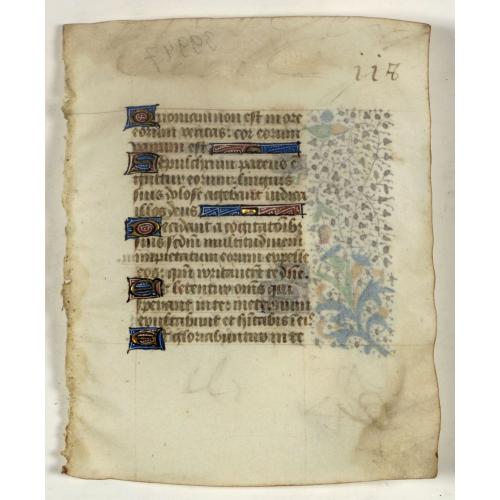 118
Quoniam non est in ore
eorum veritas: cor eorum
vanum est
Sepulchrum patens e
guttur eorum: linguis
suis dolose agebant iudica
illos deus
Decidant a cogitationibz
suis scdm multitudinem
impietatum eorum expelle
eos: qm irritaverunt te dne.
Et letentur omes qui
sperant in te: in eternum
exultabunt et hitabis i eis
Et gloriabuntur in te